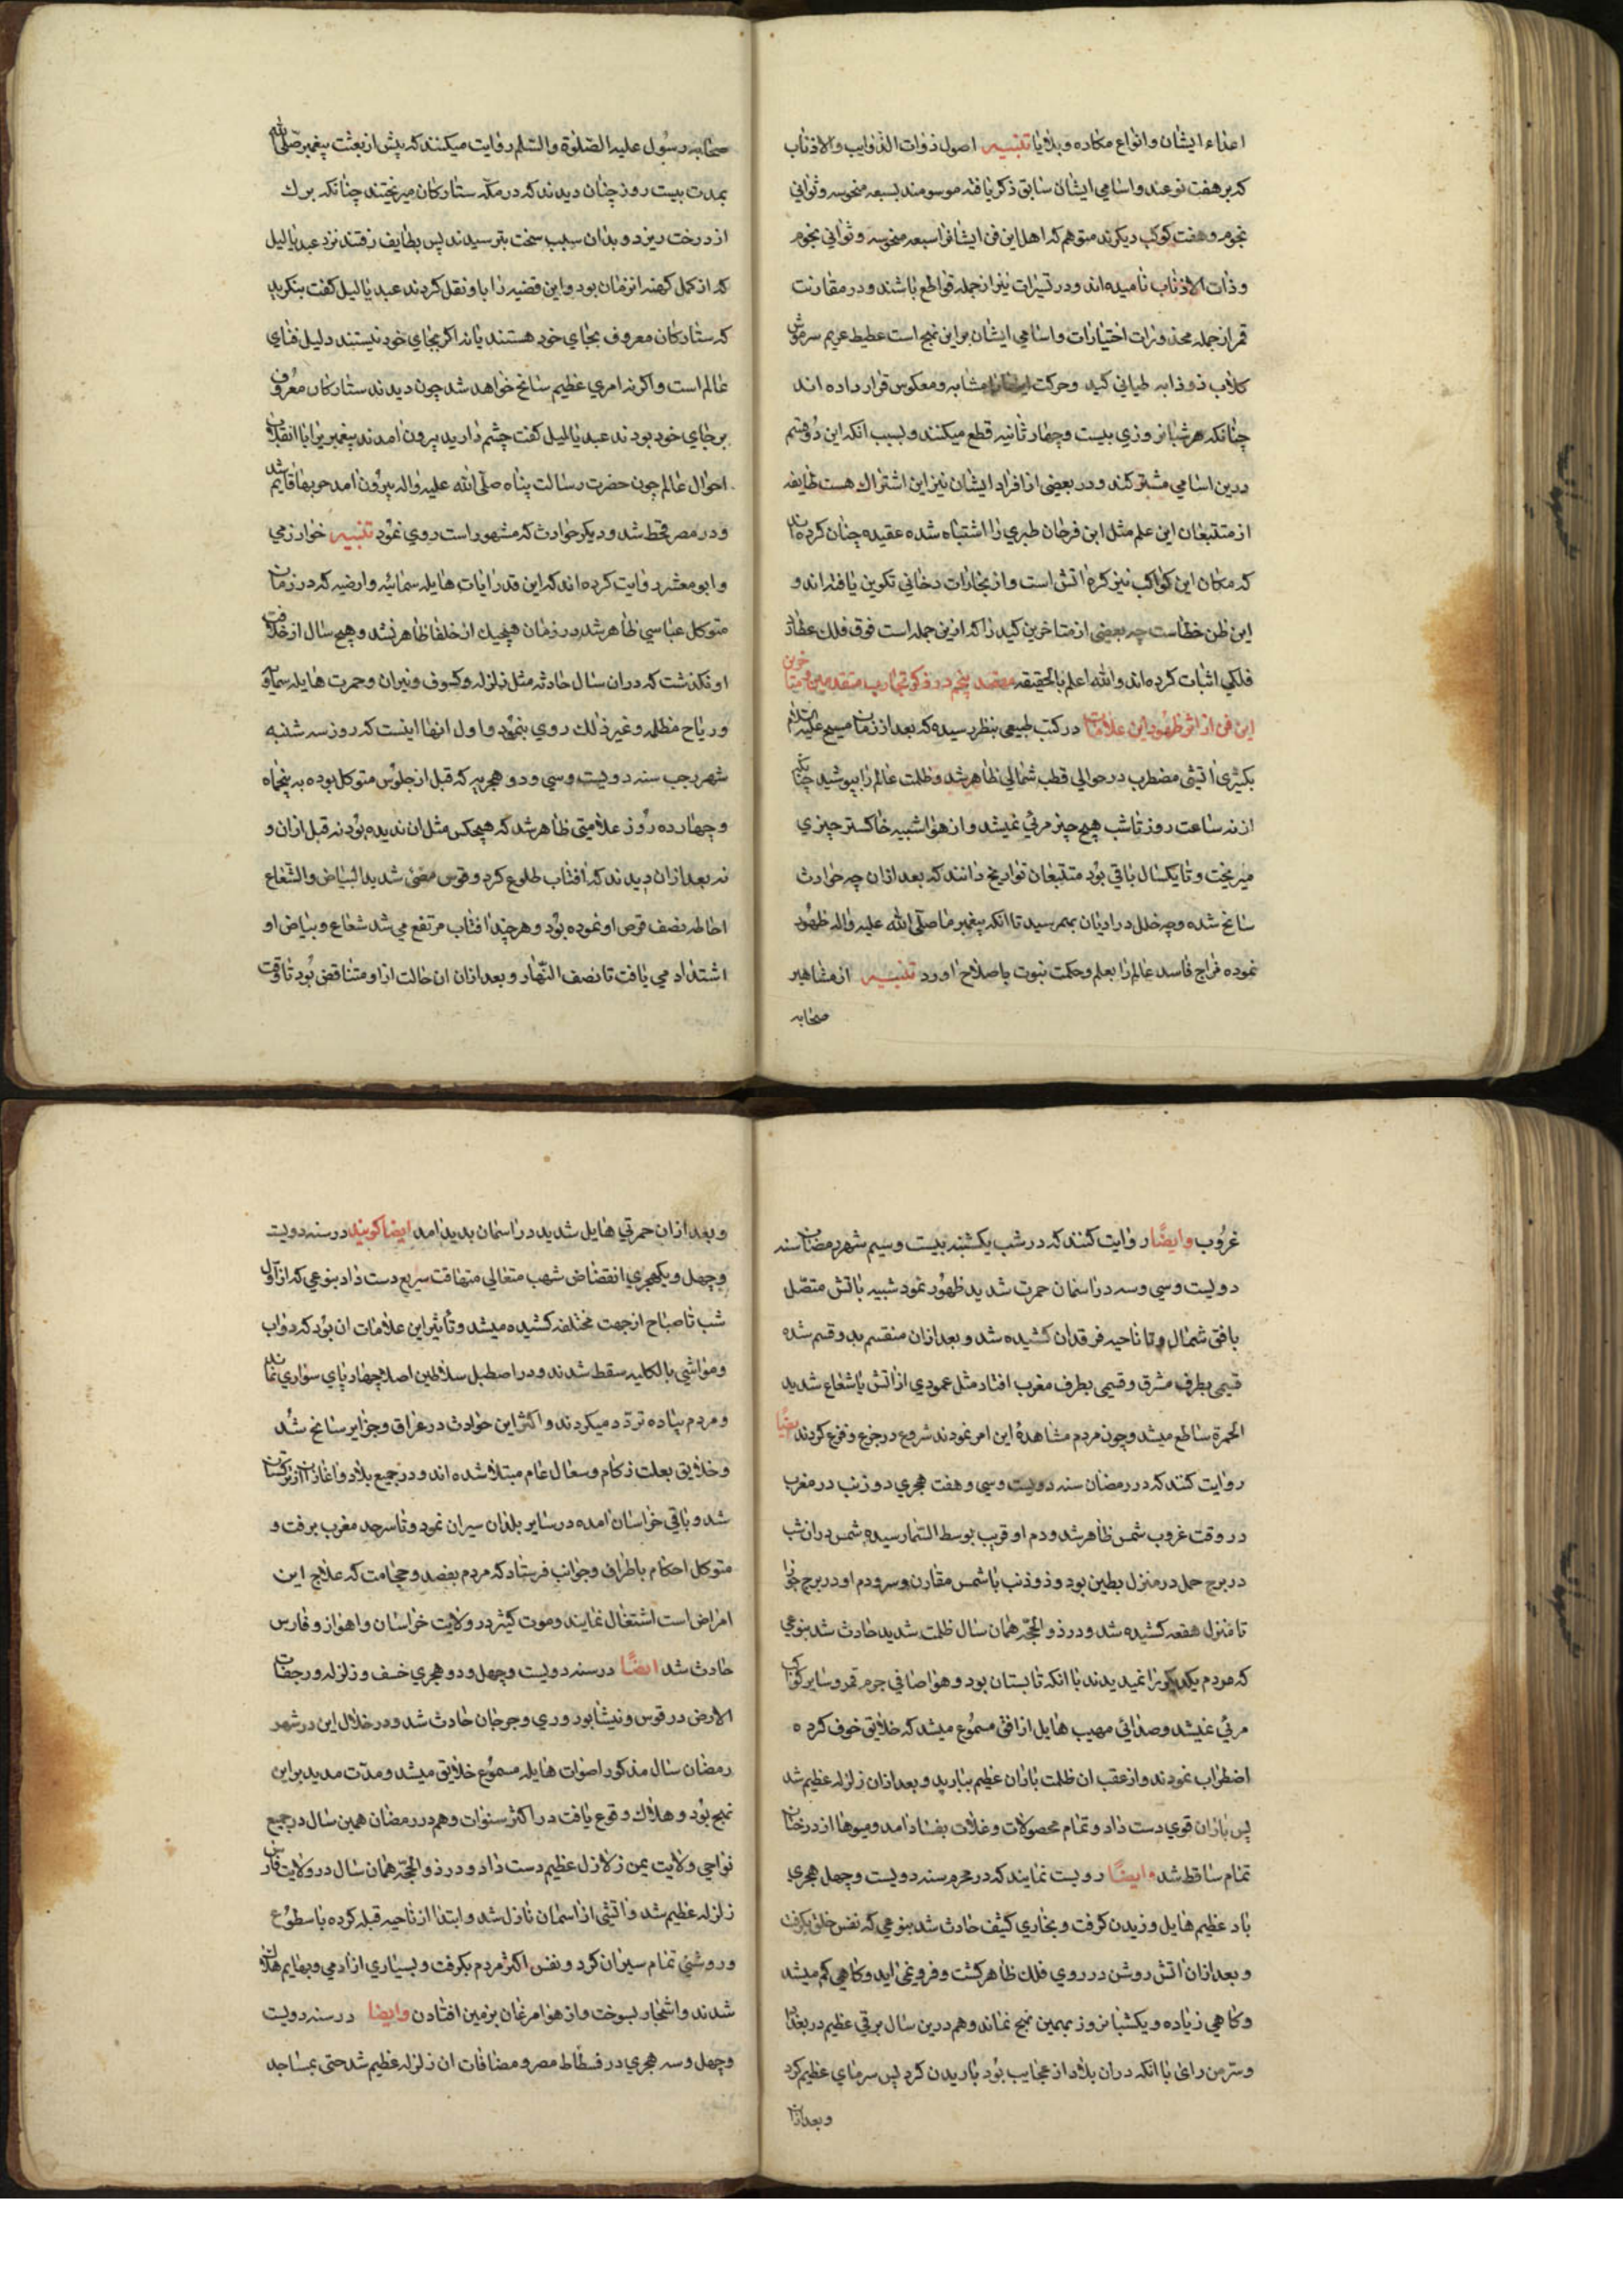 اعداء ایشان وانواع مکاده وبلایا تنبیه اصول ذوات الذوایب والاذناب
که بر هفت نوعند واسامی ایشان سابق ذکر یافته موسومند بسبعه منحوسه وثوانی
نجوم وهفت کوکب دیکرند متوهم که اهل این فن ایشانرا سبعه منحوسه وثوانی نجوم
وذات الاذناب نامیده اند ودر تسیرات نیز از جمله قواطع باشند ودر مقارنت
قمر از جمله محذورات اختیارات واسامی ایشان براین نهج است غطیط غریم سرموش
کلاب ذوذابه لحیانی کید وحرکت ایشانرا مشابه ومعکوس قرار داده اند
چنانکه هر شبانروزی بیست وچهار ثانیه قطع میکنند وبسبب انکه این دو قسم
درین اسامی مشترکند ودر بعضی از افراد ایشان نیز این اشتراک هست طایفه
از متتبعان این علم مثل ابن فرخان طبری را اشتباه شده عقیده چنان کرده اند
که مکان این کواکب نیز کره اتش است واز بخارات دخانی تکوین یافته اند و
این ظن خطاست چه بعضی از متاخرین کید را که ازین جمله است فوق فلک عطارد
فلکی اثبات کرده اند والله اعلم بالحقیقه مقصد پنجم در ذکر تجارب متقدمین ومتاخرین
این فن از اثر ظهور این علامات در کتب طبیعی بنظر رسیده که بعد از زمان مسیح علیه السلام
بکثری اتشی مضطرب در حوالی قطب شمالی ظاهر شد وظلمت عالم را بپوشید چنانکه
از نه ساعت روز تا شب هیچ چیز مرئی نمیشد واز هوا شبیه خاکستر چیزی
میریخت وتا یکسال باقی بود متتبعان تواریخ دانند که بعد ازان چه حوادث
سانح شده وچه خلل در ادیان بهم رسید تا انکه پیغمبر ما صلی الله علیه واله ظهور
نموده مزاج فاسد عالم را بعلم وحکمت نبوت باصلاح اورد تنبیه از مشاهیر
صحابه
صحابه رسول علیه الصلوة والسلم روایت میکنند که پیش از بعثت پیغمبر صلی الله
بمدت بیست روز چنان دیدند که در مکه ستارکان میریختند چنانکه برک
از درخت ریزد وبدان سبب سخت بترسیدند پس بطایف رفتند نزد عبد یالیل
که از کمل کهنه انزمان بود واین قضیه را باو نقل کردند عبد یالیل کفت بنکرید
که ستارکان معروف بجای خود هستند یا نه اکر بجای خود نیستند دلیل فنای
عالم است واکرنه امری عظیم سانح خواهد شد چون دیدند ستارکان معروف
برجای خود بودند عبد یالیل کفت چشم دارید بیرون امدند پیغمبریرا با انقلاب
احوال عالم چون حضرت رسالت پناه صلی الله علیه واله بیرون امد حربها قایم شد
ودر مصر قحط شد ودیکر حوادث که مشهور است روی نمود تنبیه خوارزمی
وابو معشر روایت کرده اند که این قدر ایات هایله سمائیه وارضیه که در زمان
متوکل عباسی ظاهر شد در زمان هیچیک از خلفا ظاهر نشد وهیچ سال از خلافت
او نکذشت که دران سال حادثه مثل زلزله وکسوف ونیران وحمرت هایله سماوی
وریاح مظلمه وغیر ذلک روی ننمود واول انها اینست که روز سه شنبه
شهر رجب سنه دویست وسی ودو هجریه که قبل از جلوس متوکل بوده به پنجاه
وچهارده روز علامتی ظاهر شد که هیچکس مثل ان ندیده بود نه قبل ازان و
نه بعد ازان دیدند که افتاب طلوع کرد وقوس مضئ شدید البیاض والشعاع
احاطه نصف قرص او نموده بود وهر چند افتاب مرتفع می شد شعاع وبیاض او
اشتداد می یافت تا نصف النهار وبعد ازان ان حالت ازاو متناقص بود تا وقت
غروب وایضا روایت کنند که در شب یکشنبه بیست وسیم شهر رمضان سنه
دویست وسی وسه در اسمان حمرت شدید ظهور نمود شبیه باتش متصل
بافق شمال وتا ناحیه فرقدان کشیده شد وبعد ازان منقسم بدو قسم شده
قسمی بطرف مشرق وقسمی بطرف مغرب افتاد مثل عمودی از اتش با شعاع شدید
الحمرة ساطع میشد وچون مردم مشاهدۀ این امر نمودند شروع در جزع وفزع کردند ایضا
روایت کنند که در رمضان سنه دویست وسی وهفت هجری ذوذنب در مغرب
در وقت غروب شمس ظاهر شد ودم او قریب بوسط السما رسیده شمس دران شب
در برج حمل در منزل بطین بود وذوذنب با شمس مقارن وسر ودم او در برج جوزا
تا منزل هقعه کشیده شد ودر ذو الحجه همان سال ظلمت شدید حادث شد بنوعی
که مردم یکدیکر را نمیدیدند با انکه تابستان بود وهوا صافی جرم قمر وسایر کواکب
مرئی نمیشد وصدائی مهیب هایل از افق مسموع میشد که خلایق خوف کرده
اضطراب نمودند واز عقب ان ظلمت باران عظیم ببارید وبعد ازان زلزله عظیم شد
پس باران قوی دست داد وتمام محصولات وغلات بفساد امد ومیوها از درختان
تمام ساقط شد وایضا رویست نمایند که در محرم سنه دویست وچهل هجری
باد عظیم هایل وزیدن کرفت وبخاری کثیف حادث شد بنوعی که نفس خلق بکرفت
وبعد ازان اتش روشن در روی فلک ظاهر کشت وفرو نمی اید وکاهی کم میشد
وکاهی زیاده ویکشبانروز بهمین نهج نماند وهم درین سال برقی عظیم در بغداد
وسر من رای با انکه دران بلاد از عجایب بود باریدن کرد پس سرمای عظیم کرد
وبعد ازان
وبعد ازان حمرتی هایل شدید در اسمان بدید امد ایضا کویند در سنه دویست
وچهل ویکهجری انقضاض شهب متعالی متهافت سریع دست داد بنوعی که از اول
شب تا صباح از جهت مختلفه کشیده میشد وتأثیر این علامات ان بود که دواب
ومواشی بالکلیه سقط شدند ودر اصطبل سلاطین اصلا چهارپای سواری نماند
ومردم پیاده تردد میکردند واکثر این حوادث در عراق وجزایر سانح شد
وخلایق بعلت زکام وسعال عام مبتلا شده اند ودر جمیع بلاد واغاز ان از ترکستان
شد وباقی خراسان امده در سایر بلدان سیران نمود وتا سرحد مغرب برفت و
متوکل احکام باطراف وجوانب فرستاد که مردم بفصد وحجامت که علاج این
امراض است اشتغال نمایند وموت کثیر در ولایت خراسان واهواز وفارس
حادث شد ایضا در سنه دویست وچهل ودو هجری خسف وزلزله ورجفات
الارض در قوس ونیشابور وری وجرجان حادث شد ودر خلال این در شهر
رمضان سال مذکور اصوات هایله مسموع خلایق میشد ومدت مدید براین
نهج بود وهلاک وقوع یافت در اکثر سنوات وهم در رمضان همین سال در جمیع
نواحی ولایت یمن زلازل عظیم دست داد ودر ذو الحجه همان سال در ولایت فارس
زلزله عظیم شد واتشی از اسمان نازل شد وابتدا از ناحیه قبله کرده با سطوع
وروشنی تمام سیران کرد ونفس اکثر مردم بکرفت وبسیاری از ادمی وبهایم هلاک
شدند واشجار بسوخت واز هوا مرغان برزمین افتادن وایضا در سنه دویست
وچهل وسه هجری در فسطاط مصر ومضافات ان زلزله عظیم شد حتی بمساجد